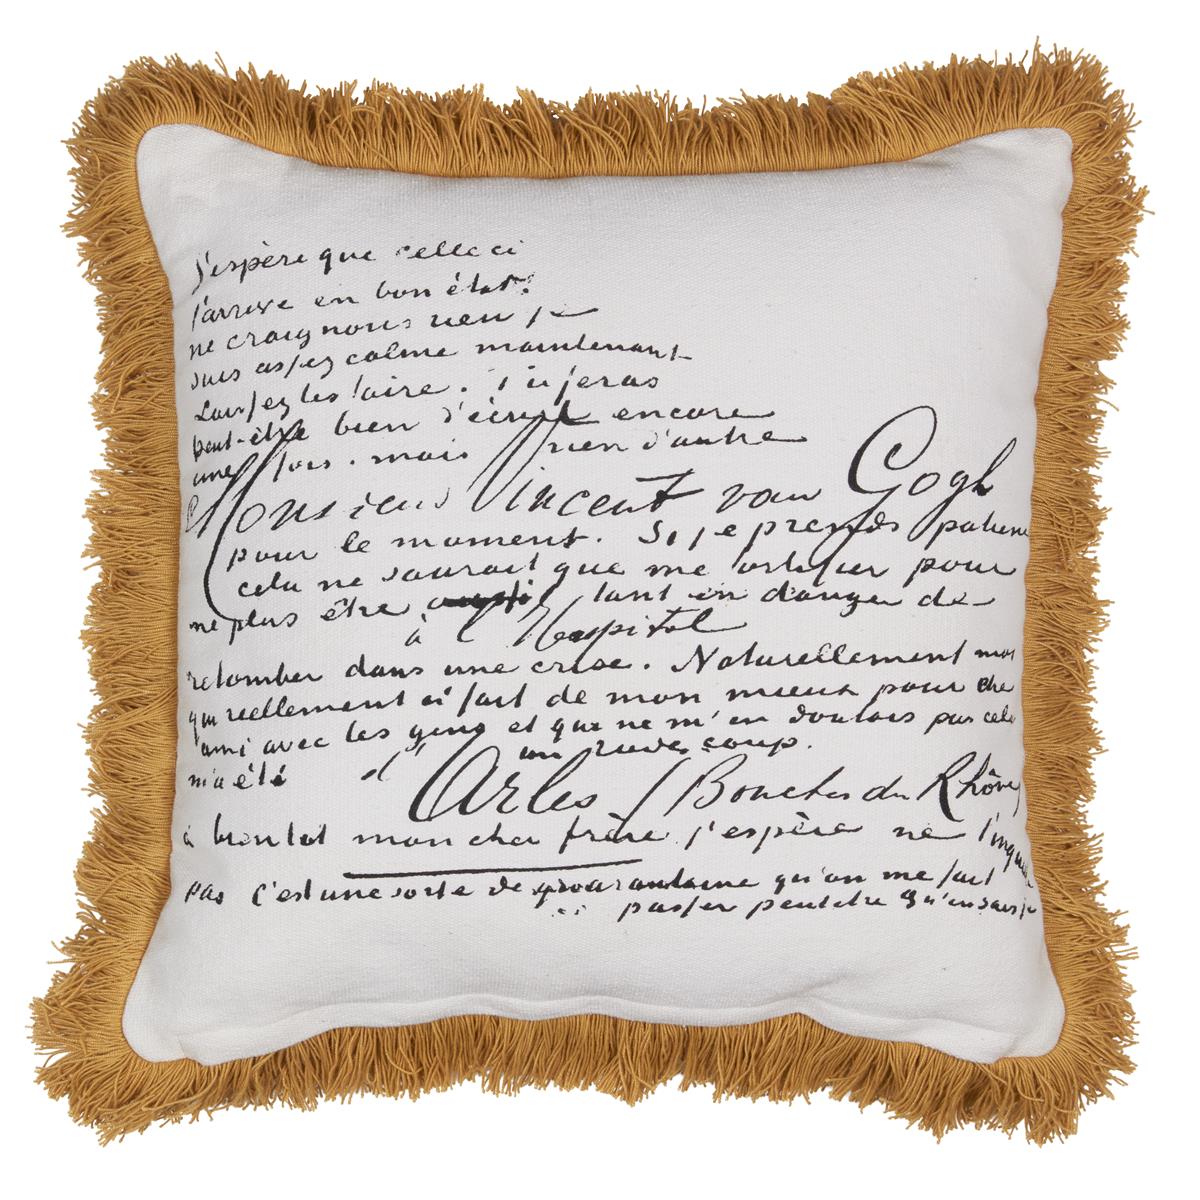 j'espère que celle ci
t'arrive en bon état.
ne craignons rien je
suis assez calme maintenant
Laissez les faire. Tu feras
peut-être bien d'écrire encore
une fois. mais rien d'autre
Monsieur Vincent van Gogh
pour le moment. Si je prends patience
cela ne saurait que me fortifier pour
ne plus être tant en danger de
à l'Hospital
retomber dans une crise. Naturellement moi
qui réellement ai fait de mon mieux pour être
ami avec les gens et qui ne m'en doutais pas cela
m'a été un rude coup.
d'Arles / Bouches du Rhône
à bientot mon cher frère j'espère ne
pas c'est une sorte de quarantaine qu'on me fait
passer peutetre qu'en sais je